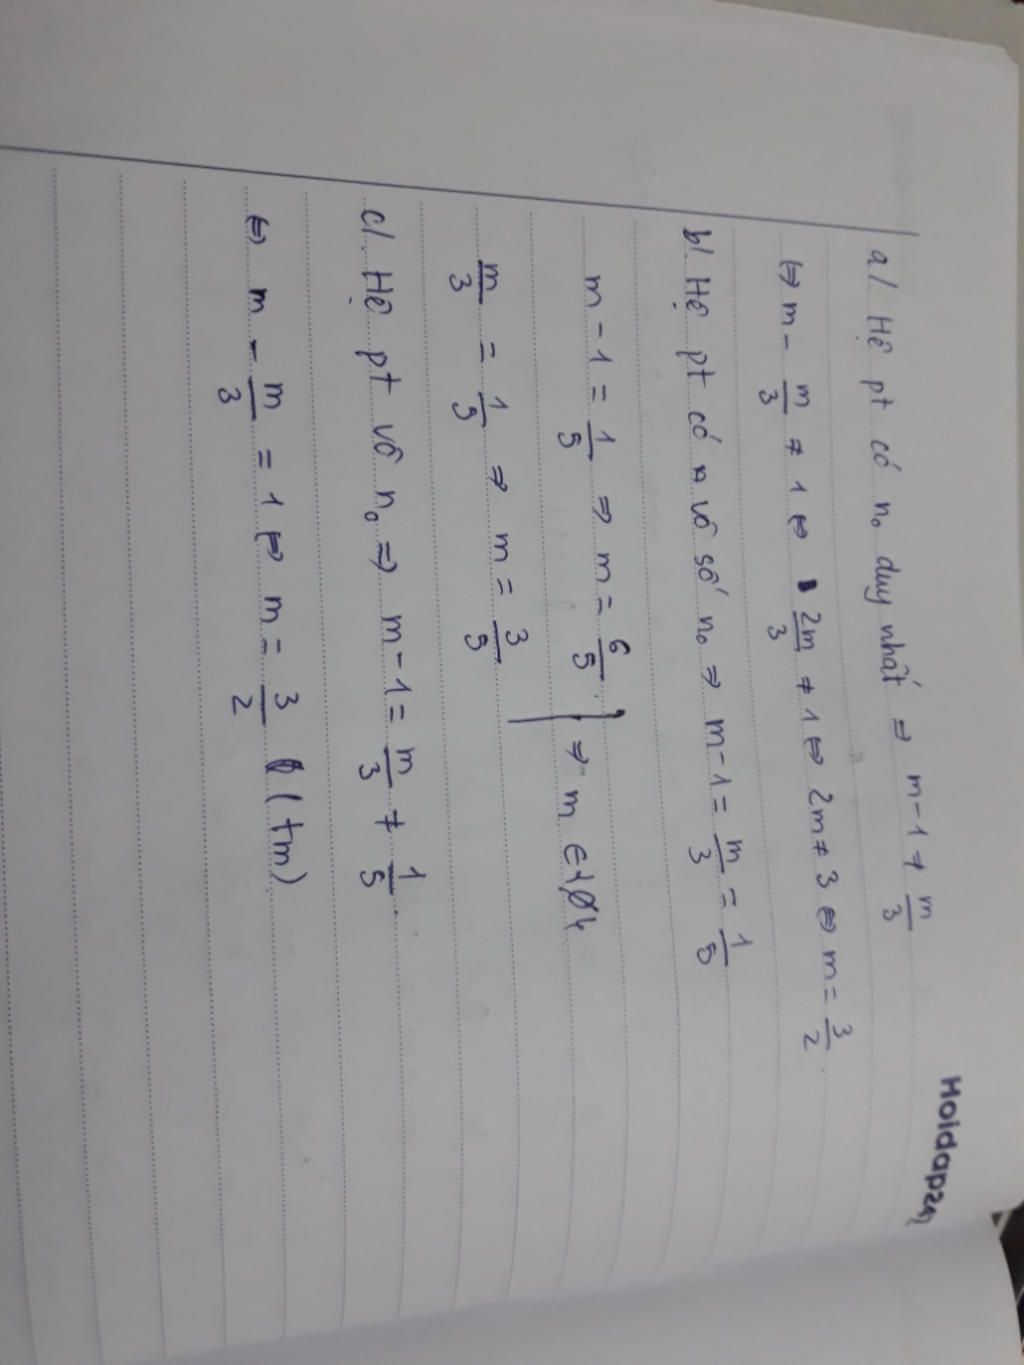 Hoidap247
a/ Hệ pt có n₀ duy nhất ⇒ m-1 ≠ m/3
⇔ m - m/3 ≠ 1 ⇔ 2m/3 ≠ 1 ⇔ 2m ≠ 3 ⇔ m = 3/2
b/ Hệ pt có vô số n₀ ⇒ m-1 = m/3 = 1/5
m-1 = 1/5 ⇒ m = 6/5
m/3 = 1/5 ⇒ m = 3/5
} ⇒ m ∈ {∅}
c/ Hệ pt vô n₀ ⇒ m-1 = m/3 ≠ 1/5
⇔ m - m/3 = 1 ⇔ m = 3/2 (tm)